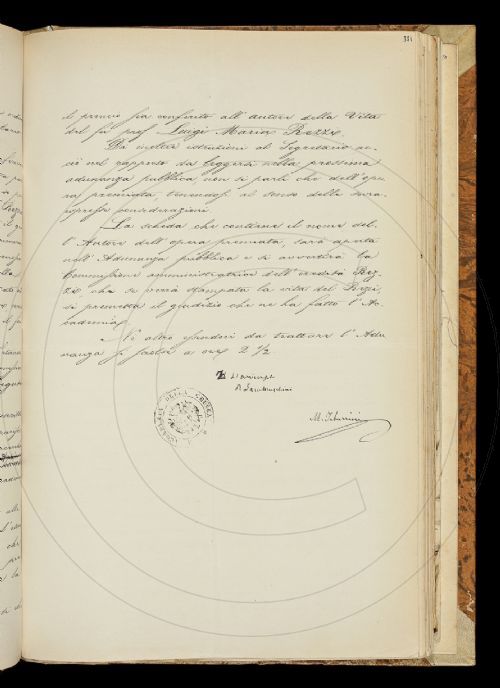 331
il premio sia conferito all'autore della Vita
del fu prof. Luigi Maria Rezzi.
Dà inoltre istruzioni al Segretario ac-
ciò nel rapporto da leggersi nella prossima
adunanza pubblica, non si parli che dell'ope-
ra premiata, tenendosi al senso delle sovra-
espresse considerazioni.
La scheda che contiene il nome del-
l'Autore dell'opera premiata, sarà aperta
nell'Adunanza pubblica e si avvertirà la
Commissione amministratrice dell'eredità Rez-
zi, che se verrà stampata la vita del Rezzi,
si premetta il giudizio che ne ha fatto l'Ac-
cademia.
Nè altro essendovi da trattare l'Adu-
nanza si scioglie a ore 2 1/2
R. Lambruschini
M. Tabarrini
ACCADEMIA DELLA CRUSCA